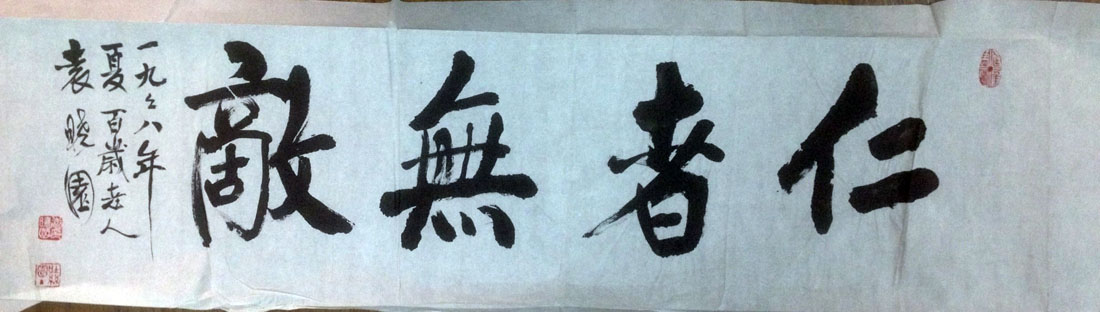 仁者無敵
一九々八年
夏百歲老人
袁晓園